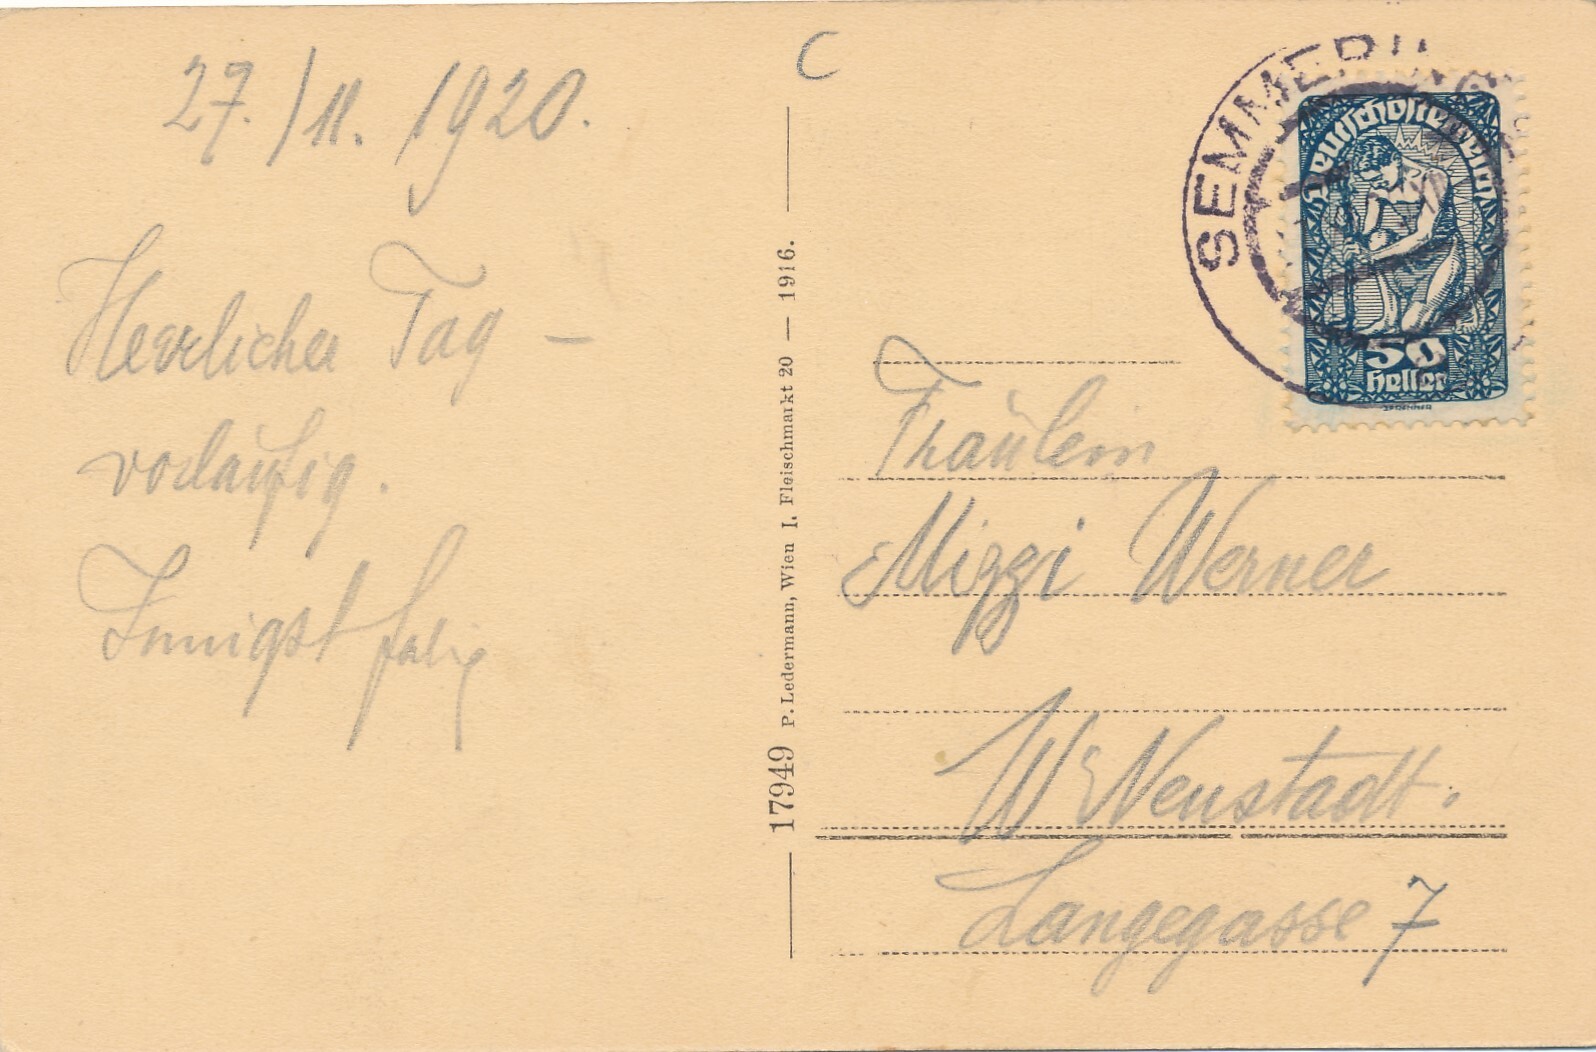 C
27./11. 1920.
Herrlicher Tag –
vorläufig.
Innigst
17949 P. Ledermann, Wien I, Fleischmarkt 20 — 1916.
SEMMERING
Deutschösterreich
50
Heller
Fräulein
Mizzi Werner
W Neustadt.
Langegasse 7